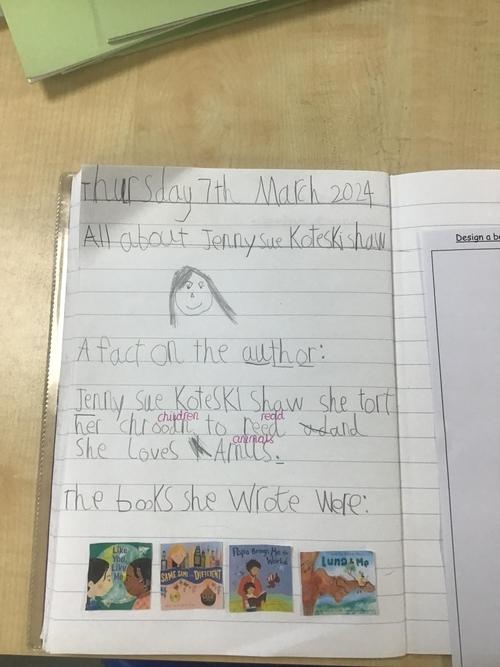 Thursday 7th March 2024
All about Jenny sue Koteski shaw
A fact on the author:
Jenny sue KOTESKI Shaw she tort
children read
her chroodn to reed and
animals
She Loves Amills.
The books she wrote were:
Like You, Like Me
SAME SAME DIFFERENT
Papa Brings Me the World
Luna & Me
Design a b